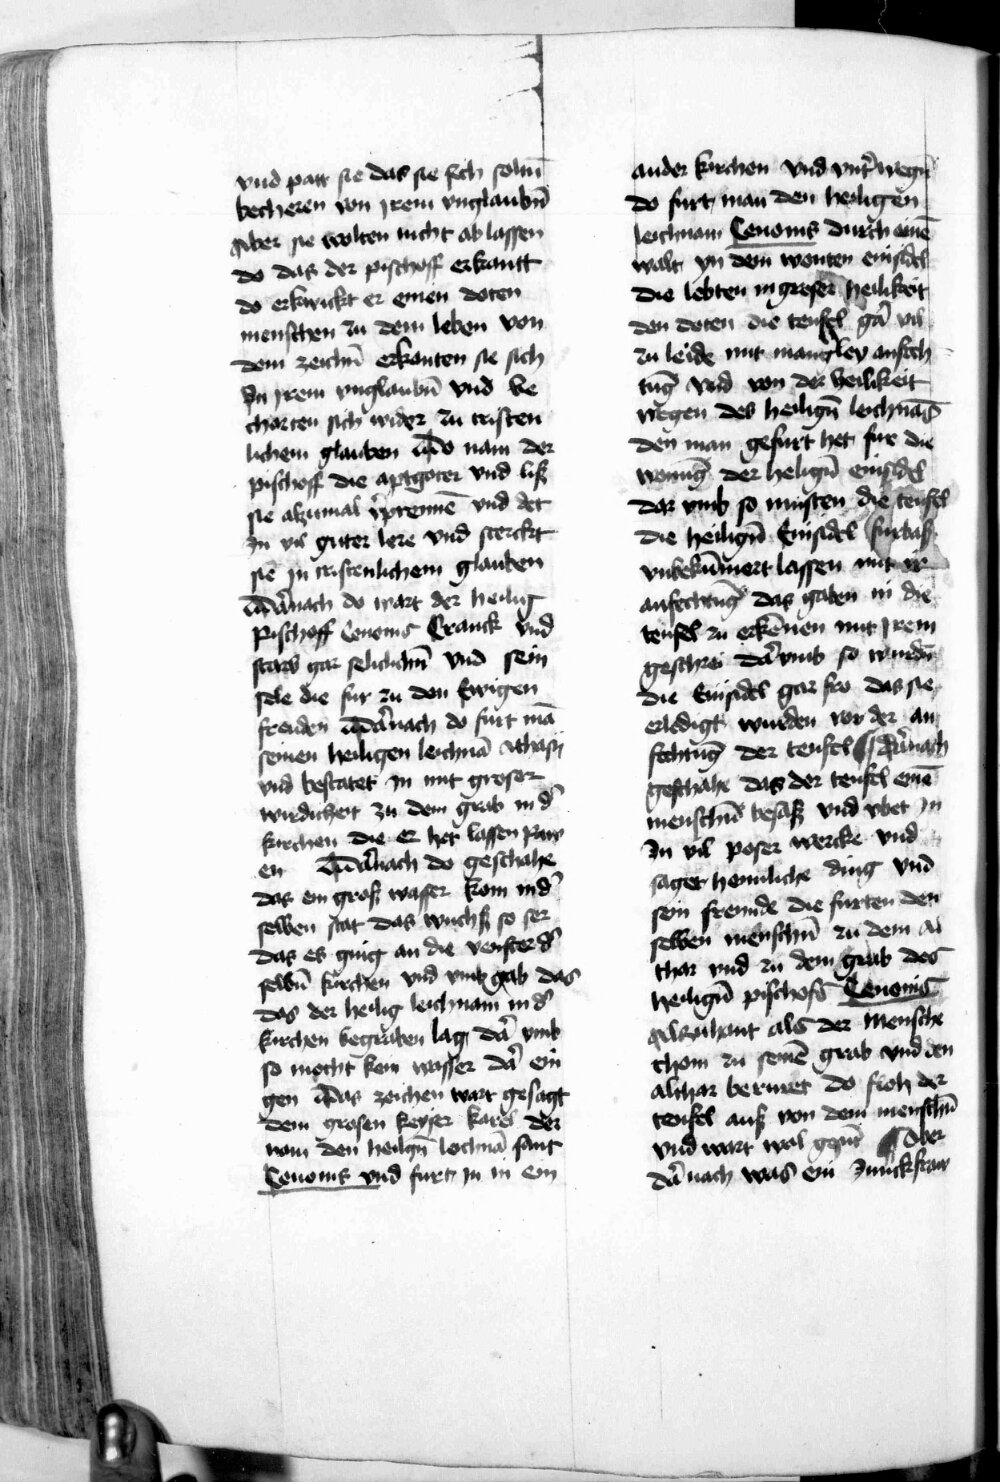 vnd patt sie das sie sich soltn̄
becheren von jrem vnglaubn̄
aber sie wolten nicht ab lassen
do das der pischoff erkantt
do erkwickt er einen doten
menschen zu dem leben von
dem zeichn̄ erkanten sie sich
In jrem vnglaubn̄ vnd be
charten sich wider zu cristen
lichem glauben do nam der
pischoff die aptgoter vnd liß
sie alzumal v̉prennē vnd det
In vil guter lere vnd sterckt
sie in cristenlichem glauben
Dar̉nach do wart der heilig
Pischoff Cenomis Cranck vnd
starb gar seliclichn̄ vnd sein
sele die fur zu den Ewigen
freuden Dar̉nach do furt mā
seinen heiligen leichnā
vnd bestatet In mit groser
wirdicheit zu dem grab in d̉
kirchen die er het lassen paw
en Dar̉nach do geschahe
das ein groß wasser kom in d̉
selben stat das wuchß so ser
das es ging an die venster d̉
selbn̄ kirchen vnd vmb gab das
das der heilig leichnam in d̉
kirchen begraben lag dar̉ vmb
so mocht kein wasser dar̉ ein
gen Das zeichen wart gesagt
dem grosen keyser karel der
nom den heilgn̄ leichnā sant
Cenomis vnd furt in in ein
ander kirchen vnd vnt̉wegn̄
do furt man den heiligen
leichnam Cenomis durch einē
walt yn dem wonten einsidel
die lebten in groser heilikeit
den doten die teufel gar̉ vil
zu leide mit mangley anfech
tūg vnd von der heilikeit
wegen des heilign̄ leichnās
den man gefurt het fur die
wonūg der heilign̄ einsidel
dar vmb so musten die teufel
die heilign̄ Einsidel furbaß
vnbekūmert lassen mit ir
anfechtūg das gaben in die
teufel zu erkēnen mit jrem
geschrei dar̉vmb so wurdn̄
die Einsidel gar fro das sie
erledigt wurden vor der an
fechtūg der teufel Dar̉nach
geschahe das der teufel einē
menschn̄ besaß vnd vbet in
In vil poser wercke vnd
saget heimliche ding vnd
sein freunde die furten den
selben menschn̄ zu dem al
thar vnd zu dem grab des
heilign̄ pischofs Cenomis
alzuhant als der Mensche
chom zu seinē grab vnd den
althar beruret do floh der
teufel auß von dem menschn̄
vnd wart wol gesūt Aber
dar̉nach was ein Junckfraw